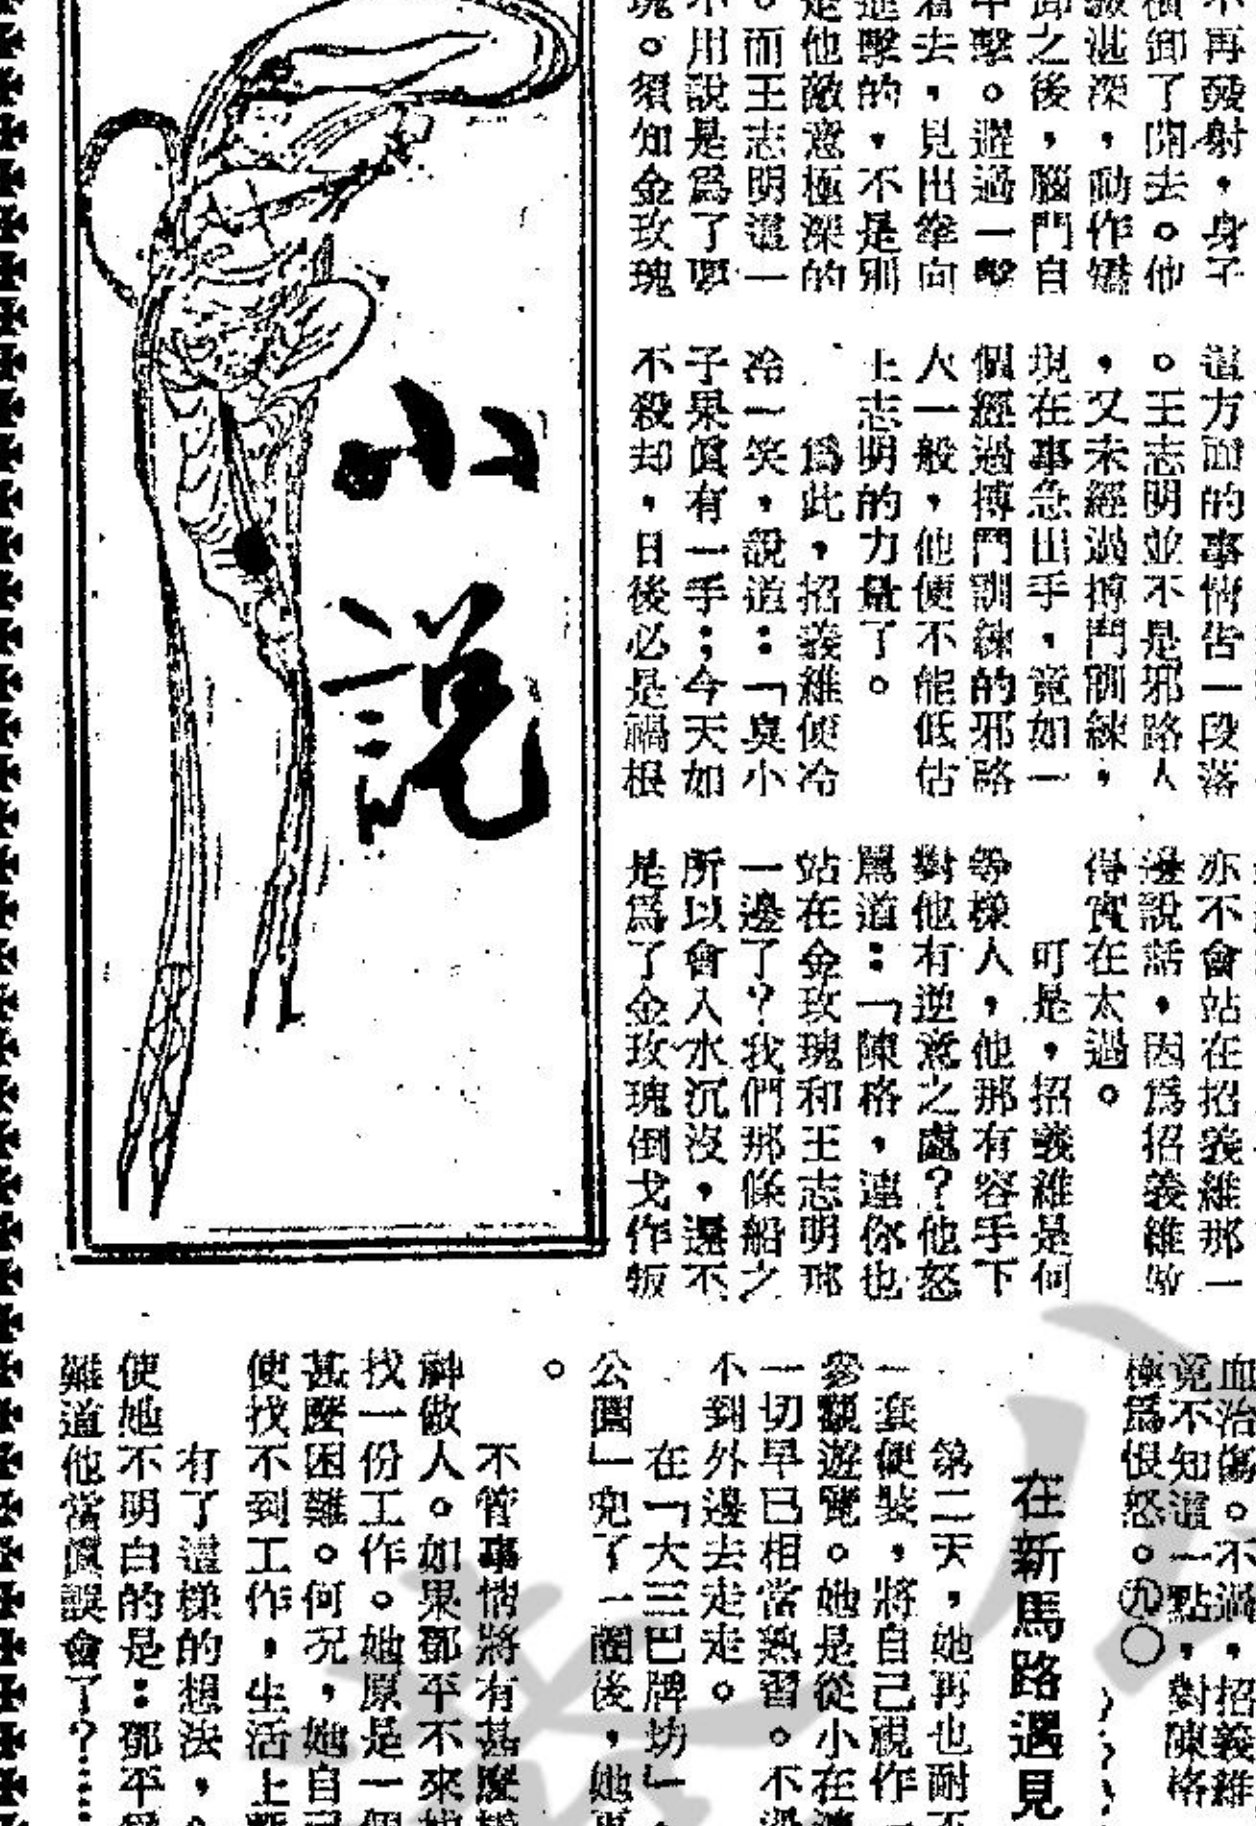 不再發射，身子
橫卸了開去。他
湛深，動作矯
卸之後，腦門自
擊。避過一擊
着去，見出拳向
進擊的，不是別
是他敵意極深的
。而王志明這一
不用說是爲了要
瑰。須知金玫瑰
這方面的事情告一段落
。王志明並不是邪路人
，又未經過搏鬥訓練，
現在事急出手，竟如一
個經過搏鬥訓練的邪路
人一般，他便不能低估
王志明的力量了。
爲此，招義雄便冷
冷一笑，說道：「臭小
子果眞有一手；今天如
不殺却，日後必是禍根
亦不會站在招義雄那一
邊說話，因爲招義雄做
得實在太過。
可是，招義雄是何
等樣人，他那有容手下
對他有逆意之處？他怒
罵道：「陳格，連你也
站在金玫瑰和王志明那
一邊了？我們那條船之
所以會入水沉沒，還不
是爲了金玫瑰倒戈作叛
小說
血治傷。不過，招義雄
竟不知這一點，對陳格
極爲恨怒。九〇
在新馬路遇見
第二天，她再也耐不
一套便裝，將自己視作
參觀遊覽。她是從小在
一切早已相當熟習。不過
不到外邊去走走。
在「大三巴牌坊」
公園」兜了一圈後，她再
。
不管事情將有甚麼
神做人。如果鄧平不來
找一份工作。她原是一個
甚麼困難。何況，她自己
便找不到工作，生活上
有了這樣的想法，
使她不明白的是：鄧平
難道他當眞誤會了？……